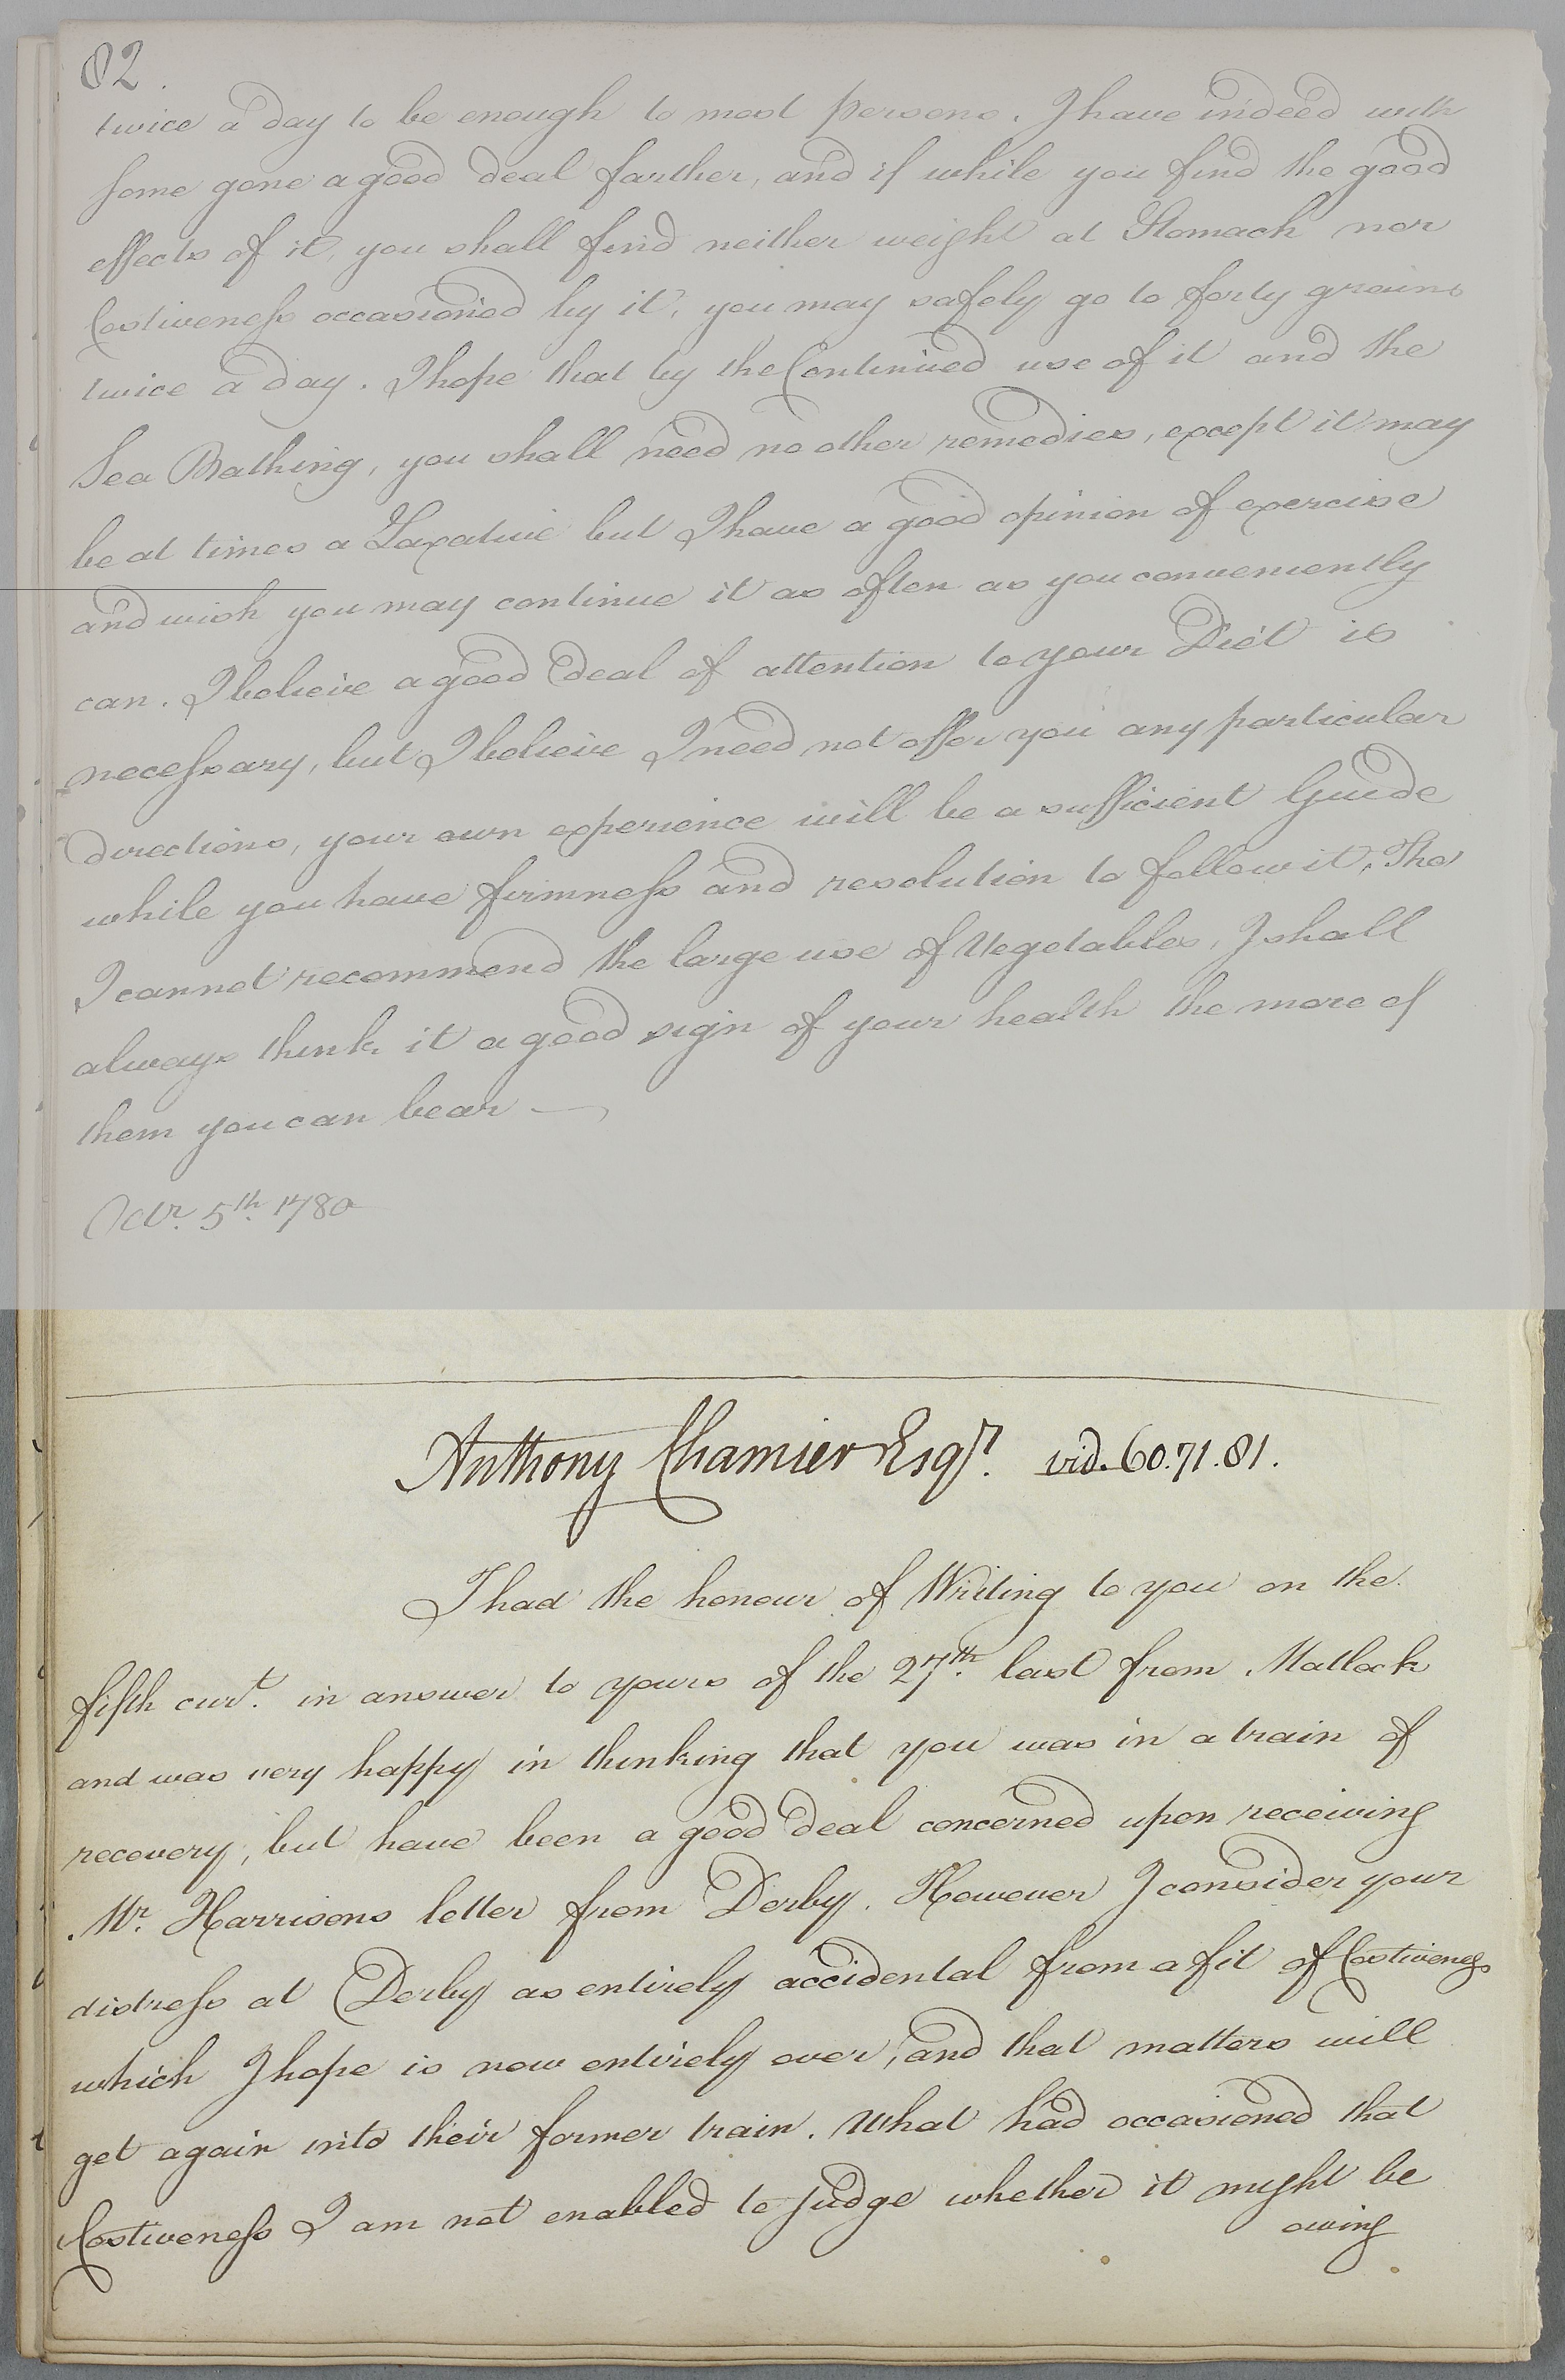 82.
twice a day to be enough to most persons. I have indeed with
some gone a good deal farther, and if while you find the good
effects of it, you shall find neither weight at Stomach nor
Costiveness occasioned by it, you may safely go to forty grains
twice a day. I hope that by the Continued use of it and the
Sea Bathing, you shall need no other remedies, except it may
be at times a Laxative but I have a good opinion of exercise
and wish you may continue it as often as you conveniently
can. I believe a good deal of attention to your Diet is
necessary, but I believe I need not offer you any particular
directions, your own experience will be a sufficient Guide
while you have firmness and resolution to follow it. Tho
I cannot recommend the large use of Vegetables, I shall
always think it a good sign of your health the more of
them you can bear —
Octr. 5th. 1780
Anthony Chamier Esqr. vid. 60. 71. 81.
I had the honour of Writing to you on the
fifth curt. in answer to yours of the 27th. last from Matlock
and was very happy in thinking that you was in a train of
recovery, but have been a good deal concerned upon receiving
Mr. Harrisons letter from Derby. However I consider your
distress at Derby as entirely accidental from a fit of Costiveness
which I hope is now entirely over, and that matters will
get again into their former train. What had occasioned that
Costiveness I am not enabled to judge whether it might be
owing